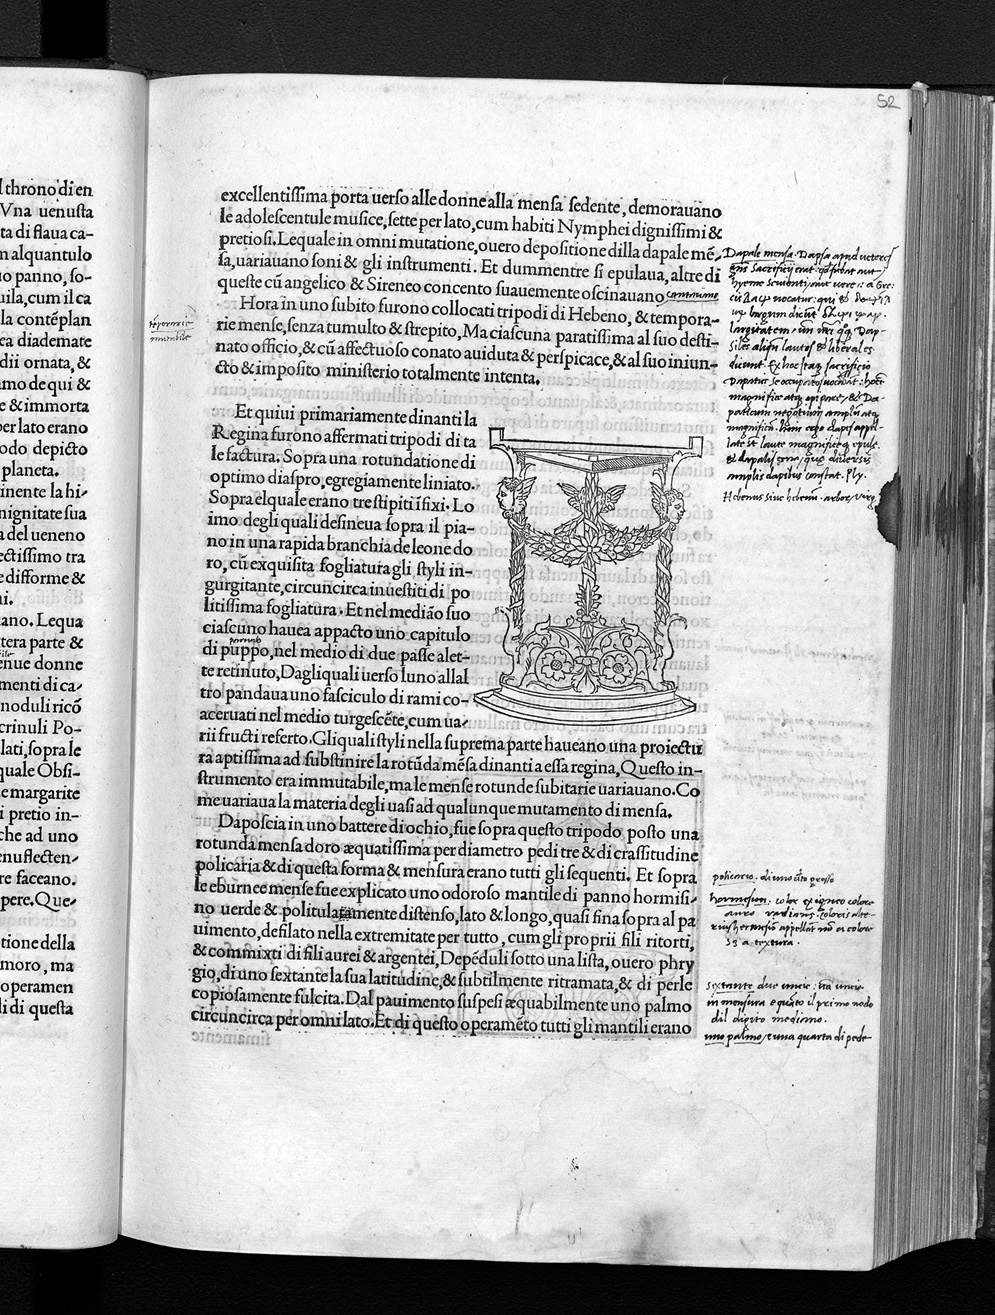 52
l throno di en
Vna uenusta
ta di flaua ca-
m alquantulo
o panno, so-
uila, cum il ca
la contẽplan
ea diademate
dii ornata, &
mo de qui &
e & immorta
per lato erano
odo depicto
planeta.
inente la hi-
nignitate sua
a del ueneno
ectissimo tra
e difforme &
ni.
ano. Lequa
tera parte &
enue donne
menti di ca-
noduli ricõ
crinuli Po-
lati, sopra le
quale Obsi-
e margarite
i pretio in-
che ad uno
enuflecten-
re faceano.
pere. Que-
tione della
moro, ma
operamen
li di questa
excellentissima porta uerso alle donne alla mensa sedente, demorauano
le adolescentule musice, sette per lato, cum habiti Nymphei dignissimi &
pretiosi. Lequale in omni mutatione, ouero depositione dilla dapale mẽ-
sa, uariauano soni & gli instrumenti. Et dummentre si epulaua, altre di
queste cũ angelico & Sireneo concento suauemente oscinauano
Hora in uno subito furono collocati tripodi di Hebeno, & tempora-
rie mense, senza tumulto & strepito, Ma ciascuna paratissima al suo desti-
nato officio, & cũ affectuoso conato auiduta & perspicace, & al suo iniun-
cto & imposito ministerio totalmente intenta.
Et quiui primariamente dinanti la
Regina furono affermati tripodi di ta
le factura. Sopra una rotundatione di
optimo diaspro, egregiamente liniato.
Sopra el quale erano tre stipiti ifixi. Lo
imo degli quali desineua sopra il pia-
no in una rapida branchia de leone do
ro, cũ exquisita fogliatura gli styli in-
gurgitante, circuncirca inuestiti di po
litissima fogliatura. Et nel medião suo
ciascuno hauea appacto uno capitulo
di puppo, nel medio di due passe alet-
te retinuto, Dagli quali uerso luno allal
tro pandaua uno fasciculo di rami co-
aceruati nel medio turgescẽte, cum ua-
rii fructi referto. Gli quali styli nella suprema parte haueano una proiectu
ra aptissima ad substinire la rotũda mẽsa dinanti a essa regina, Questo in-
strumento era immutabile, ma le mense rotunde subitarie uariauano. Co
me uariaua la materia degli uasi ad qualunque mutamento di mensa.
Daposcia in uno battere di ochio, fue sopra questo tripodo posto una
rotunda mensa doro æquatissima per diametro pedi tre & di crassitudine
policaria & di questa forma & mensura erano tutti gli sequenti. Et sopra
le eburnee mense fue explicato uno odoroso mantile di panno hormisi-
no uerde & politulatamente distenso, lato & longo, quasi fina sopra al pa
uimento, defilato nella extremitate per tutto, cum gli proprii fili ritorti,
& commixti di fili aurei & argentei, Depẽduli sotto una lista, ouero phry
gio, di uno sextante la sua latitudine, & subtilmente ritramata, & di perle
copiosamente fulcita. Dal pauimento suspesi æquabilmente uno palmo
circuncirca per omni lato. Et di questo operamẽto tutti gli mantili erano
Dapale mensa. Dapsa apud veteres
Hebenus sive hebenum. arbor, Virg.
policario. di uno dito grosso
hormesion. color ex igneo colore
auro
sextante due uncie
in mensura
dil digito medismo.
uno palmo, e una quarta di pede